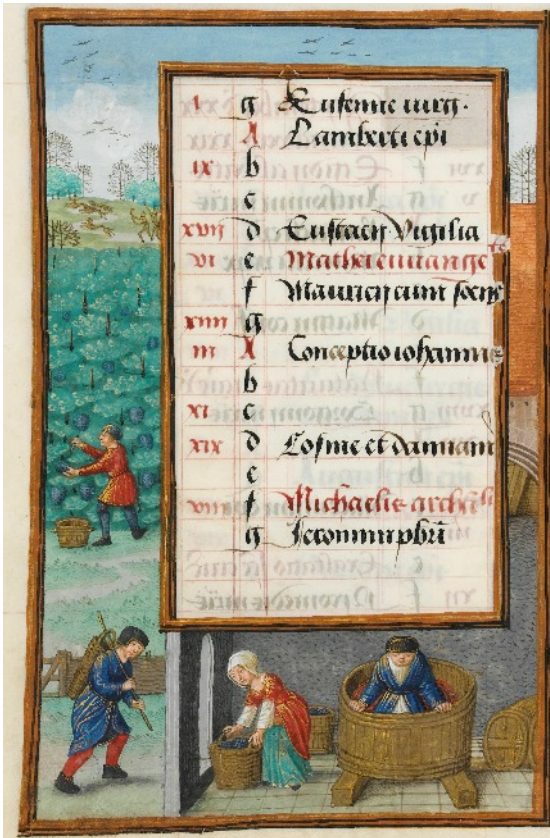 i g Eufemie virg.
A Lamberti epi
ix b
c
xvij d Eustacij Vigilia
vi e Mathei euuange
f Mauricij cum socijs
xiiij g
iij A Conceptio iohannis
b
xi c
xix d Cosme et damiani
e
viij f Michaelis archeli
g Jeronimi pbri